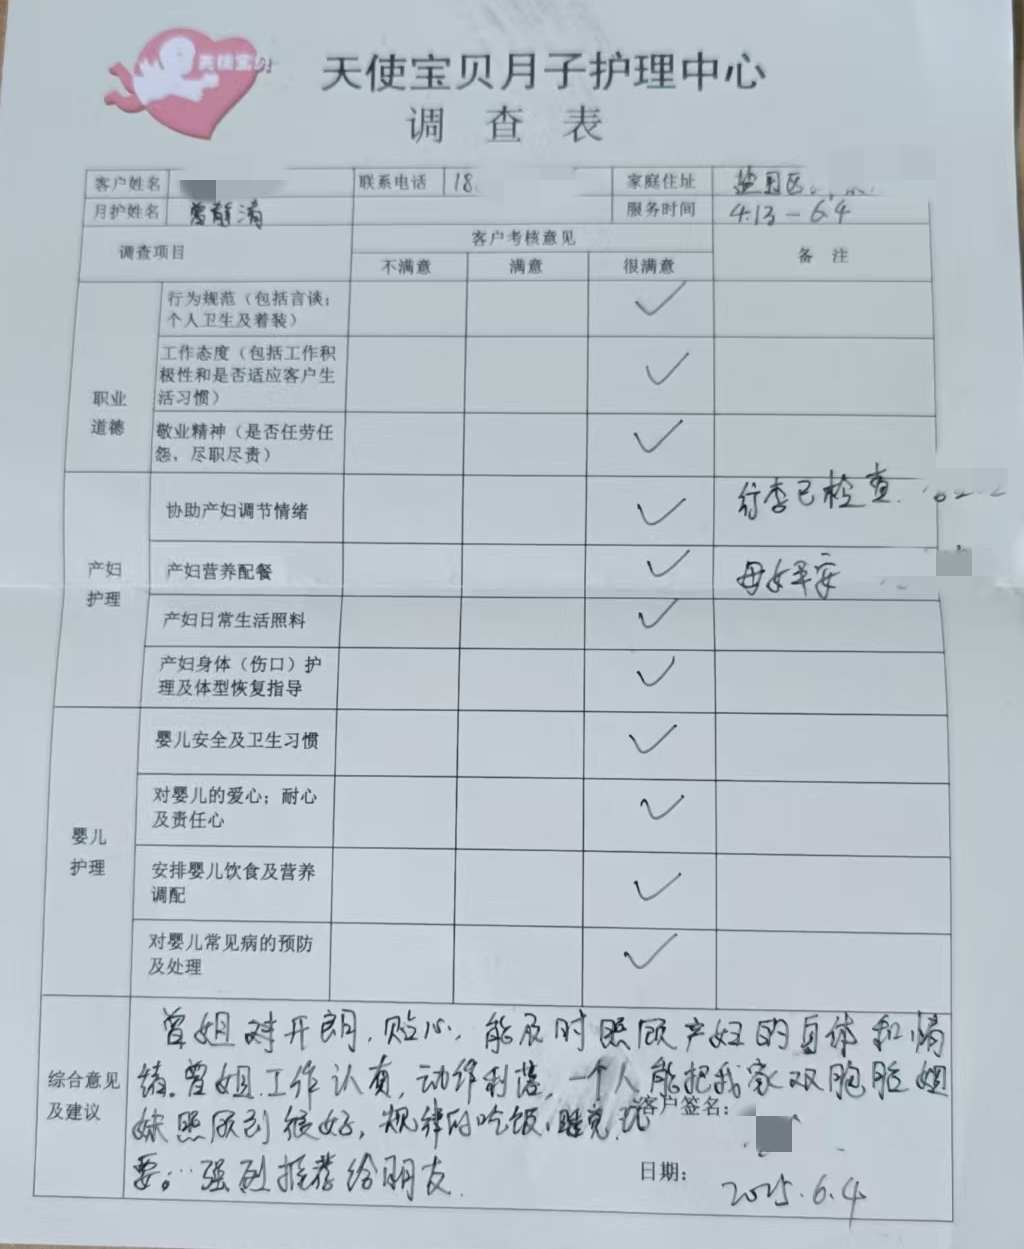 天使宝贝
天使宝贝月子护理中心
调查表
客户姓名 联系电话 18 家庭住址 盐田区
月护姓名 曾静清 服务时间 4.13-6.4
调查项目 客户考核意见 备注
不满意 满意 很满意
职业道德
行为规范（包括言谈；
个人卫生及着装）
工作态度（包括工作积
极性和是否适应客户生
活习惯）
敬业精神（是否任劳任
怨、尽职尽责）
产妇护理
协助产妇调节情绪 行李已检查.
产妇营养配餐 母女平安
产妇日常生活照料
产妇身体（伤口）护
理及体型恢复指导
婴儿护理
婴儿安全及卫生习惯
对婴儿的爱心；耐心
及责任心
安排婴儿饮食及营养
调配
对婴儿常见病的预防
及处理
综合意见及建议
曾姐 开朗、贴心，能及时照顾产妇的身体和情
绪。曾姐工作认真，动作利落，一个人能把我家双胞胎姐
妹照顾到很好，规律的吃饭、睡觉、玩
耍。强烈推荐给朋友.
客户签名：
日期： 2025.6.4